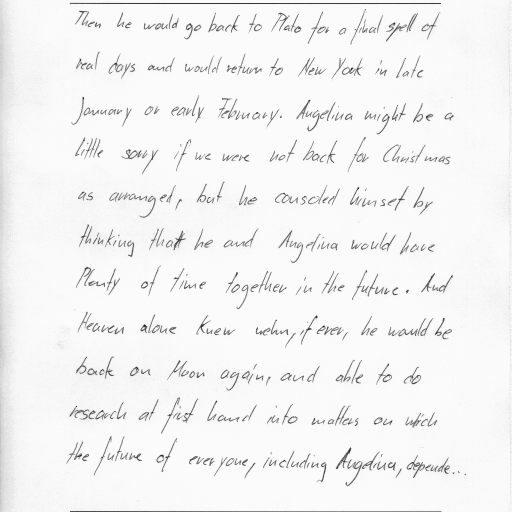 Then he would go back to Plato for a final spell of
real days and would return to New York in late
January or early February. Angelina might be a
little sorry if we were not back for Christmas
as arranged, but he consoled himself by
thinking that he and Angelina would have
Plenty of time together in the future. And
Heaven alone knew when, if ever, he would be
back on Moon again, and able to do
research at first hand into matters on which
the future of everyone, including Angelina, depende...